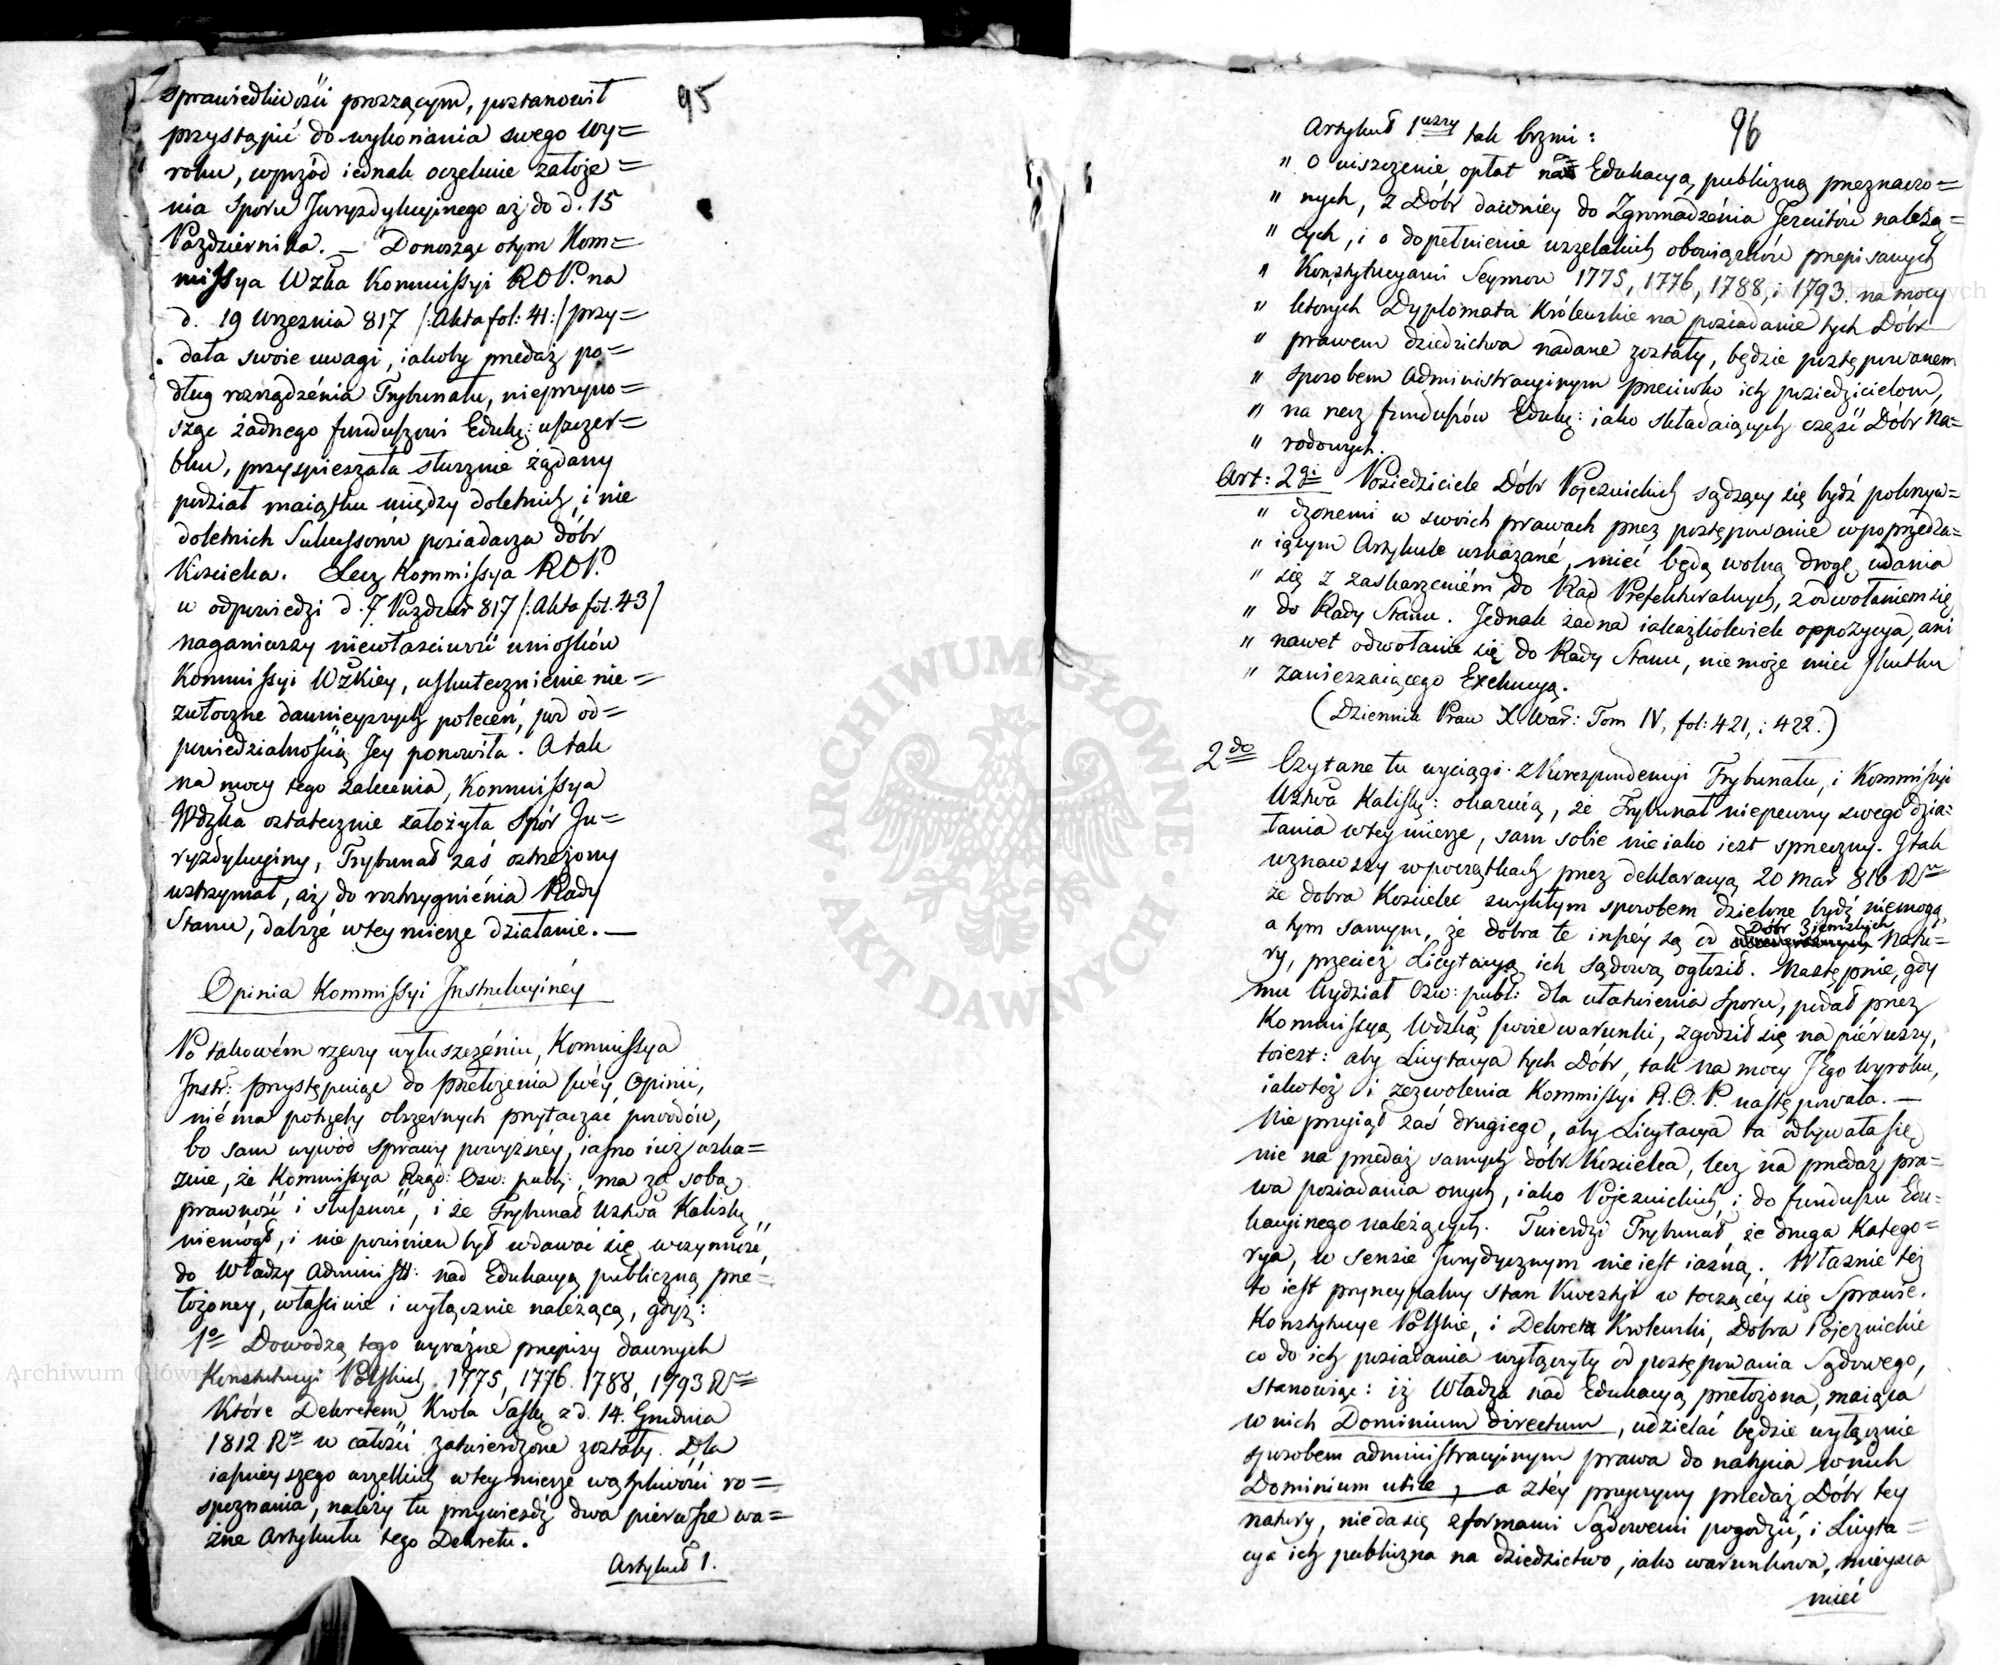 95
sprawiedliwości proszącym, postanowił
przystąpić do wykonania swego wy=
roku, wprzód iednak oczekiwie założe=
nia sporu Juryzdykcyinego aż do d. 15
Października. — Donosząc o tym Kom=
missya Wzka Kommissyi ROP. na
d. 19 Września 817 /: Akta fol: 41:/ przy=
dała swoie uwagi, iakoby przedaż po=
dług rozrządzénia Trybunału, nieprzyno=
sząc żadnego funduszowi Eduk: uszczer=
bku, przyspieszała słusznie żądany
podział maiątku między doletnich i nie
doletnich Sukcessorów posiadacza dóbr
Kościelca. Lecz Kommissya ROP.
w odpowiedzi d. 7. Paździer 817 /: Akta fol. 43/
naganiwszy niewłasciwość wniosków
Kommissyi Wzkiey, uskutecznienie nie=
zwłoczne dawnieyszych poleceń, pod od=
powiedzialnością Jey ponowiła. A tak
na mocy tego zalecenia, Kommissya
Wdzka ostatecznie założyła Spór Ju=
ryzdykcyiny, Trybunał zaś ostrzeżony
wstrzymał, aż do rozstrzygnienia Rady
Stanu, dalszé w tey mierze działanie. —
Opinia Kommissyi Instrukcyinéy
Po takowém rzeczy wyłuszczéniu, Kommissya
Instr: przystępuiąc do przełożenia swéy Opinii,
niéma potrzeby obszernych przytaczać powodów,
bo sam wywód sprawy powyższéy, iasno iuż oka=
zuie, że Kommissya Rząd: Osw: publ:, ma za sobą
prawność i słuszność, i że Trybunał Wztwa Kalisk:
niemógł, i nie powinien był wdawać się w czynność,
do Władzy Administr: nad Edukacyą publiczną prze=
łożoney, właściwie i wyłącznie należącą, gdyż:
1o Dowodzą tego wyraźne przepisy dawnych
Konstytucyi Polskich 1775, 1776. 1788, 1793 R
Które Dekretem Krola Sask: z d. 14. Grudnia
1812 R w całości zatwierdzone zostały. Dla
iaśnieyszego wszelkich w tey mierze wątpliwości ro=
spoznania, należy tu przywieśdź dwa pierwsze wa=
żne Artykuły tego Dekretu.
Artykuł 1.
96
Artykuł 1wszy tak brzmi:
" O uiszczenie opłat na Edukacyą publiczną przeznaczo=
" nych, z Dóbr dawniéy do Zgromadzénia Jezuitów należą=
" cych, i o dopełnienie wszelakich obowiązków przepisanych
" Konstytucyami Seymow 1775, 1776, 1788, i 1793. na mocy
" ktorych Dyplomata Królewskie na posiadanie tych Dóbr
" prawem dziedzictwa nadane zostały, będzie postępowanem
" sposobem Administracyinym przeciwko ich posiedzicielom,
" na rzecz funduszów Eduk: iako składaiących część Dóbr Na=
" rodowych.
Art: 2gi Posiedziciele Dóbr Pojezuickich sądzący się bydź pokrzyw=
" dzonemi w swoich prawach przez postępowanie w poprzedza=
" iącym Artykule wskazané, mieć będą wolną drogę udania
" się z zaskarzeniém do Rad Prefekturalnych, z odwołaniem się
" do Rady Stanu. Jednak żadna iakażkolwiek oppozycya, ani
" nawet odwołanie się do Rady Stanu, nie może mieć skutku
" zawieszaiącego Exekucyą.
(Dziennik Praw X. War: Tom IV, fol: 421, i 422.)
2do Czytane tu wyciągi z Korespondencyi Trybunału, i Kommissyi
Wztwa Kalisk: okazuią, że Trybunał niepewny swego dzia=
łania w tey mierze, sam sobie nieiako iest sprzeczny. I tak
uznawszy w początkach przez deklaracyą 20 Mar 816 R
że dobra Kościelec zwykłym sposobem dzielone bydź niemogą,
a tym samym, że dobra te inszéy są od Dóbr Ziemskich Natu=
ry, przecież Licytacyą ich sądową ogłosił. Następnie, gdy
mu Wydział Osw: publ: dla ułatwienia Sporu, podał przez
Kommissyą Wdzką swoie warunki, zgodził się na piérwszy,
to iest: aby Licytacya tych Dóbr, tak na mocy Jego Wyroku,
iakoteż i zezwolenia Kommissyi R.O.P. następowała. —
Nieprzyiął zaś drugiego, aby Licytacya ta odbywała się
nie na przedaż samych dóbr Kościelca, lecz na przedaż pra=
wa posiadania onych, iako Pojezuickich, i do funduszu Edu=
kacyinego należących. Twierdzi Trybunał, że druga Katego=
rya, w sensie Jurydycznym nie iest iasną. Własnie też
to iest pryncypalny Stan Kwestyi w toczącéy się Sprawie.
Konstytucye Polskie, i Dekreta Krolewski, Dobra Pojezuickie
co do ich posiadania wyłączyły od postępowania Sądowego,
stanowiąc: iż Władza nad Edukacyą przełożona, maiąca
w nich Dominium directum, udzielać będzie wyłącznie
sposobem administracyinym prawa do nabycia w nich
Dominium utile, — a z téy przyczyny przedaż Dóbr tey
natury, nieda się z formami Sądowemi pogodzić, i Licyta=
cya ich publiczna na dziedzictwo, iako warunkowa, mieysca
mieć